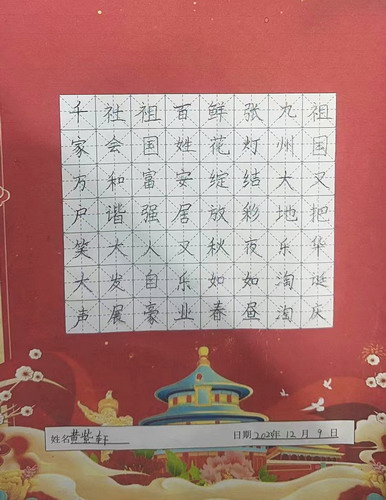 祖国又把华诞庆
九州大地乐淘淘
张灯结彩夜如昼
鲜花绽放秋如春
百姓安居又乐业
祖国富强人自豪
社会和谐大发展
千家万户笑大声
姓名 黄紫轩
日期 2024年 12月 9日